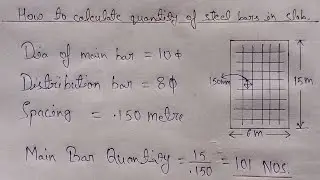 How to calculate quantity of steel bars in slab.
Dia of main bar = 10ϕ
Distribution bar = 8ϕ
Spacing = .150 metre
150mm
15m
6m
Main Bar Quantity = 15/.150 = 101 NOS.